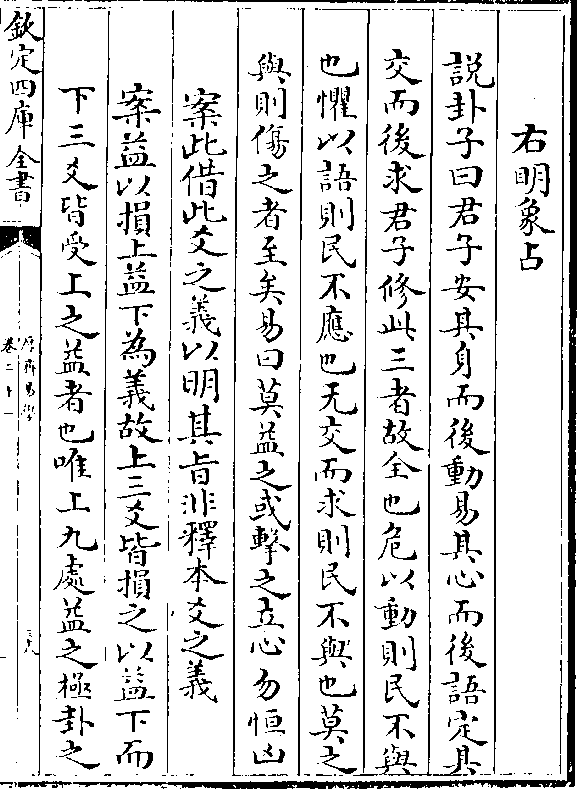 右明象占
說卦子曰君子安其身而後動易其心而後語定其
交而後求君子修此三者故全也危以動則民不與
也懼以語則民不應也无交而求則民不與也莫之
與則傷之者至矣易曰莫益之或擊之立心勿恒凶
案此借此爻之義以明其旨非釋本爻之義
案益以損上益下為義故上三爻皆損之以益下而
下三爻皆受上之益者也唯上九處益之極卦之
欽定四庫全書
厚齋易學
卷二十一